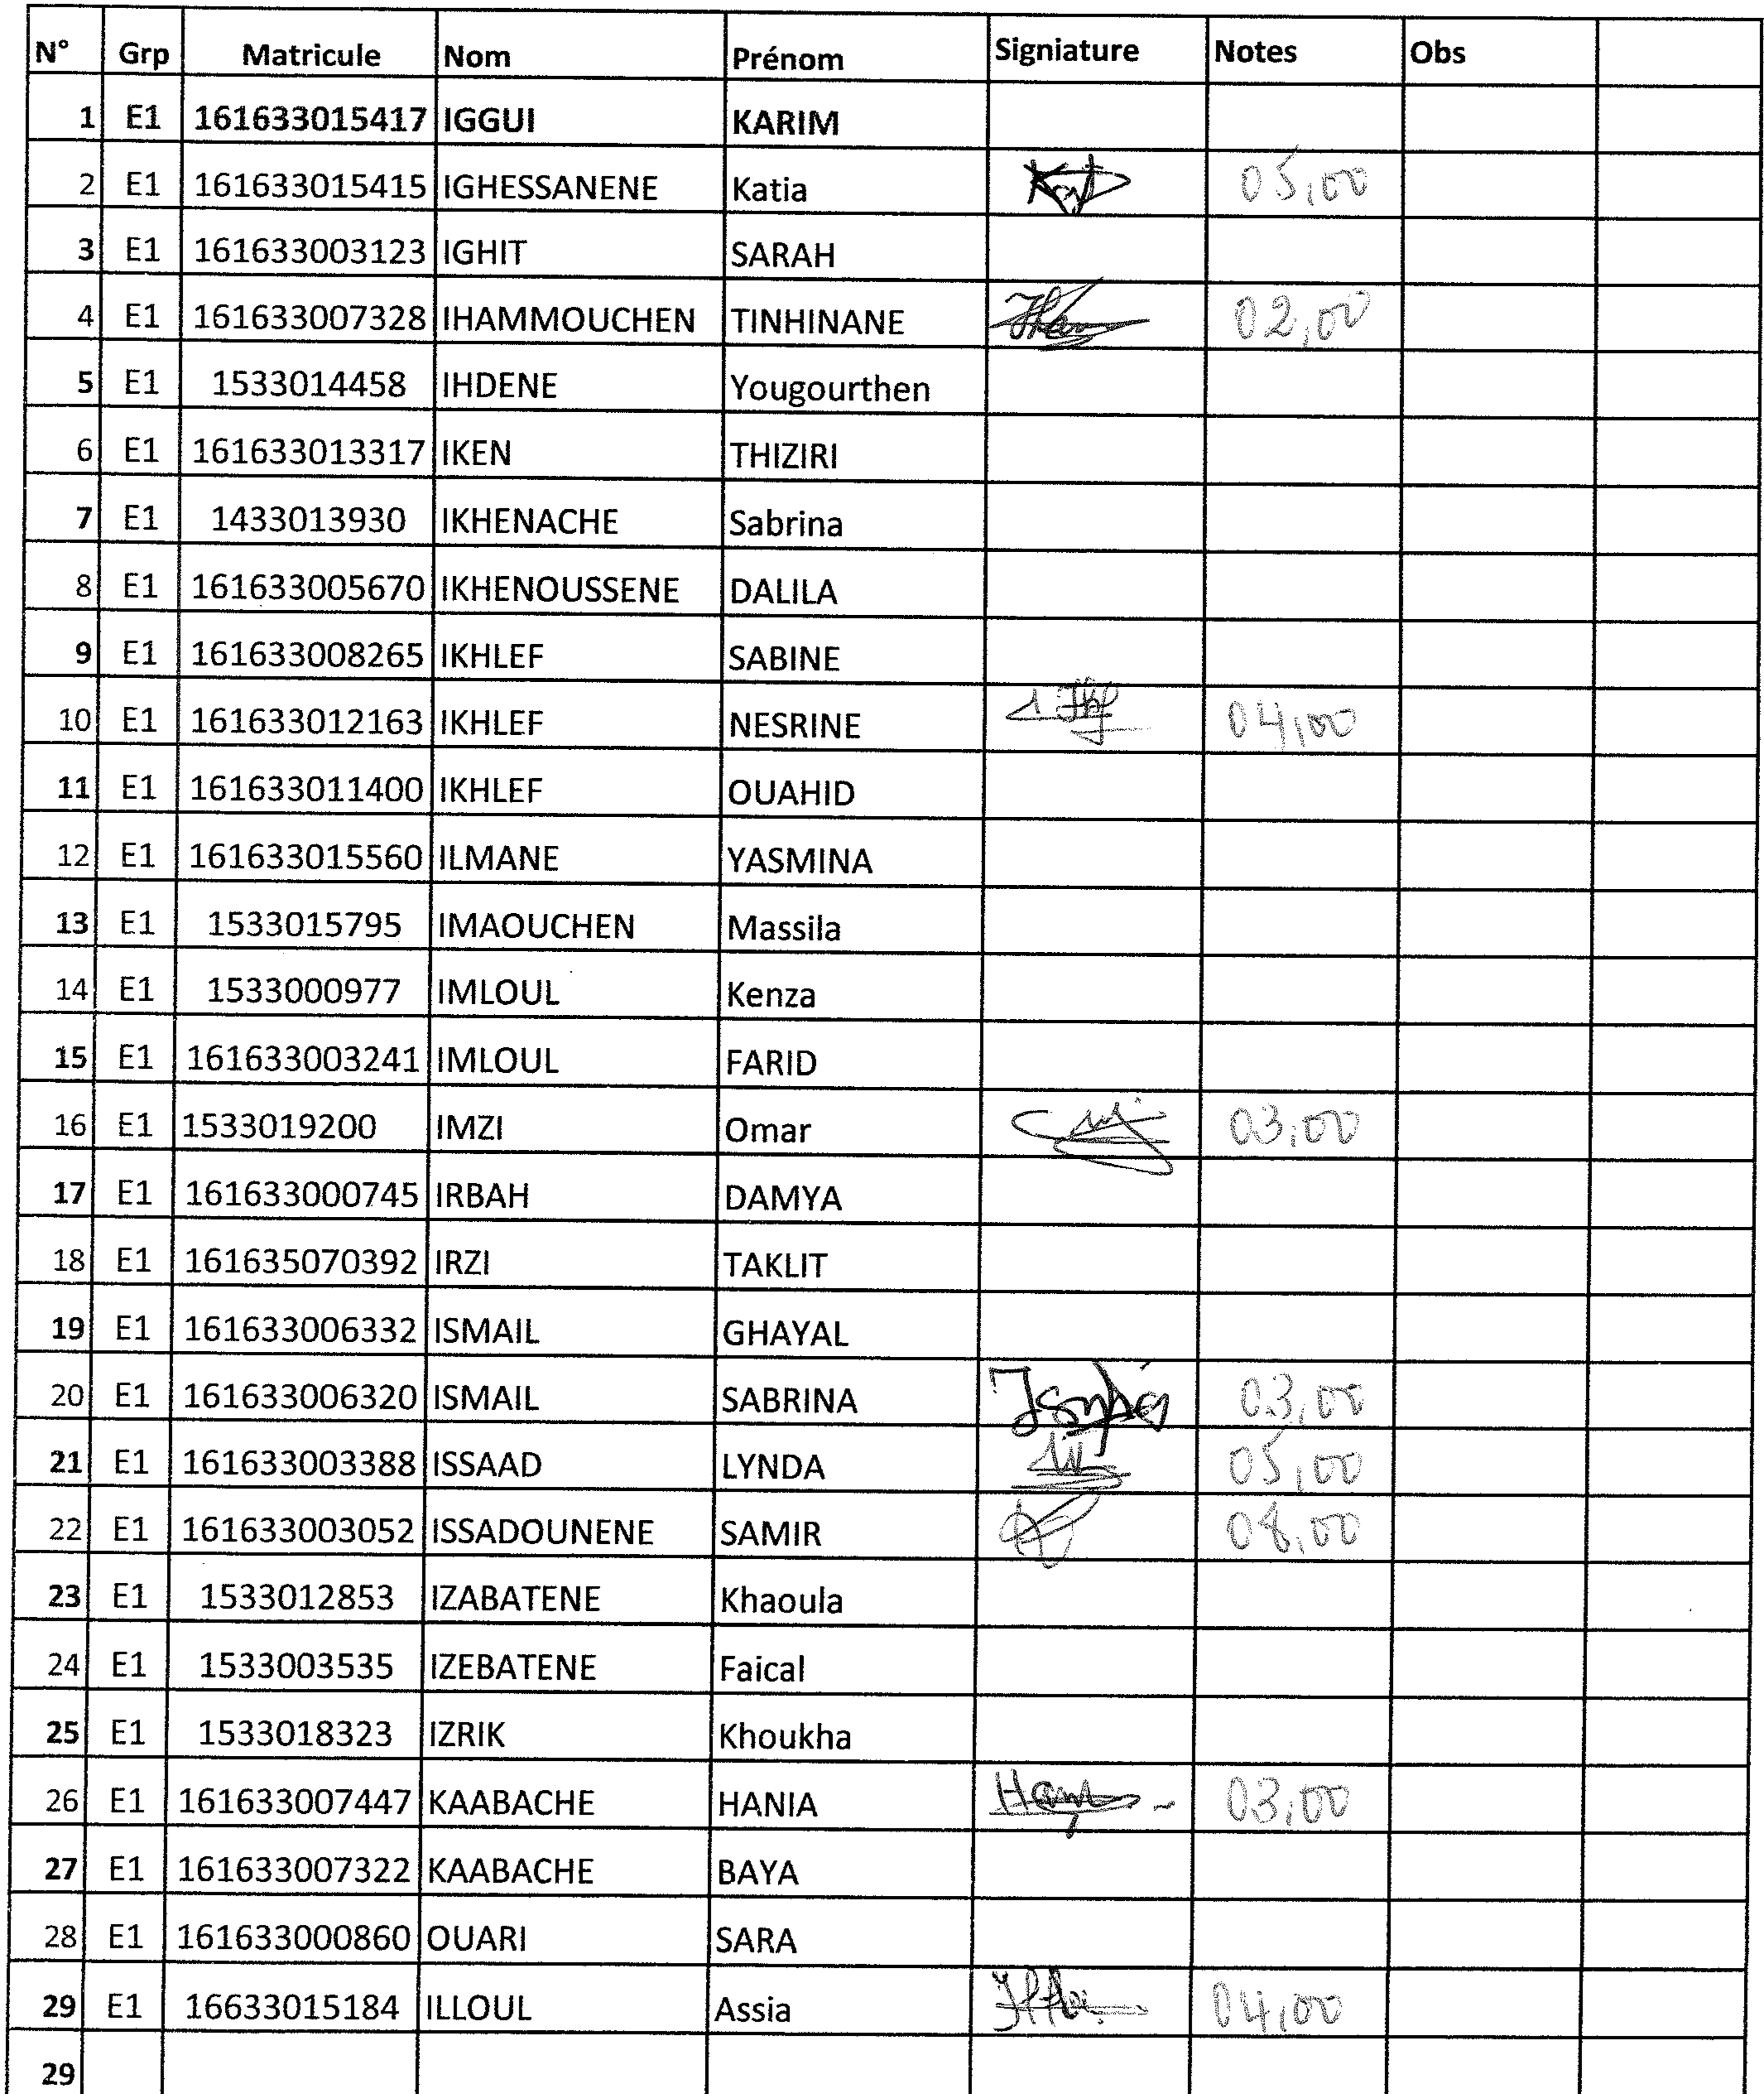 N° Grp Matricule Nom Prénom Signiature Notes Obs
1 E1 161633015417 IGGUI KARIM
2 E1 161633015415 IGHESSANENE Katia 05,00
3 E1 161633003123 IGHIT SARAH
4 E1 161633007328 IHAMMOUCHEN TINHINANE 02,00
5 E1 1533014458 IHDENE Yougourthen
6 E1 161633013317 IKEN THIZIRI
7 E1 1433013930 IKHENACHE Sabrina
8 E1 161633005670 IKHENOUSSENE DALILA
9 E1 161633008265 IKHLEF SABINE
10 E1 161633012163 IKHLEF NESRINE 04,00
11 E1 161633011400 IKHLEF OUAHID
12 E1 161633015560 ILMANE YASMINA
13 E1 1533015795 IMAOUCHEN Massila
14 E1 1533000977 IMLOUL Kenza
15 E1 161633003241 IMLOUL FARID
16 E1 1533019200 IMZI Omar 03,00
17 E1 161633000745 IRBAH DAMYA
18 E1 161635070392 IRZI TAKLIT
19 E1 161633006332 ISMAIL GHAYAL
20 E1 161633006320 ISMAIL SABRINA 03,00
21 E1 161633003388 ISSAAD LYNDA 05,00
22 E1 161633003052 ISSADOUNENE SAMIR 08,00
23 E1 1533012853 IZABATENE Khaoula
24 E1 1533003535 IZEBATENE Faical
25 E1 1533018323 IZRIK Khoukha
26 E1 161633007447 KAABACHE HANIA 03,00
27 E1 161633007322 KAABACHE BAYA
28 E1 161633000860 OUARI SARA
29 E1 16633015184 ILLOUL Assia 04,00
29